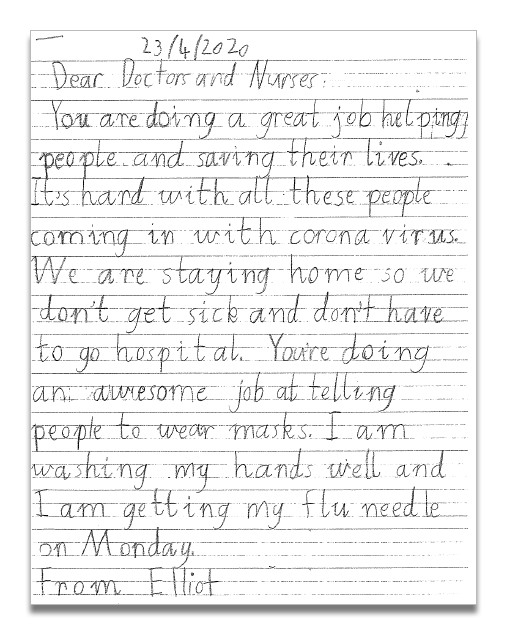 23/4/2020
Dear Doctors and Nurses:
You are doing a great job helping
people and saving their lives.
It's hard with all these people
coming in with corona virus.
We are staying home so we
don't get sick and don't have
to go hospital. You're doing
an awesome job at telling
people to wear masks. I am
washing my hands well and
I am getting my flu needle
on Monday.
From Elliot